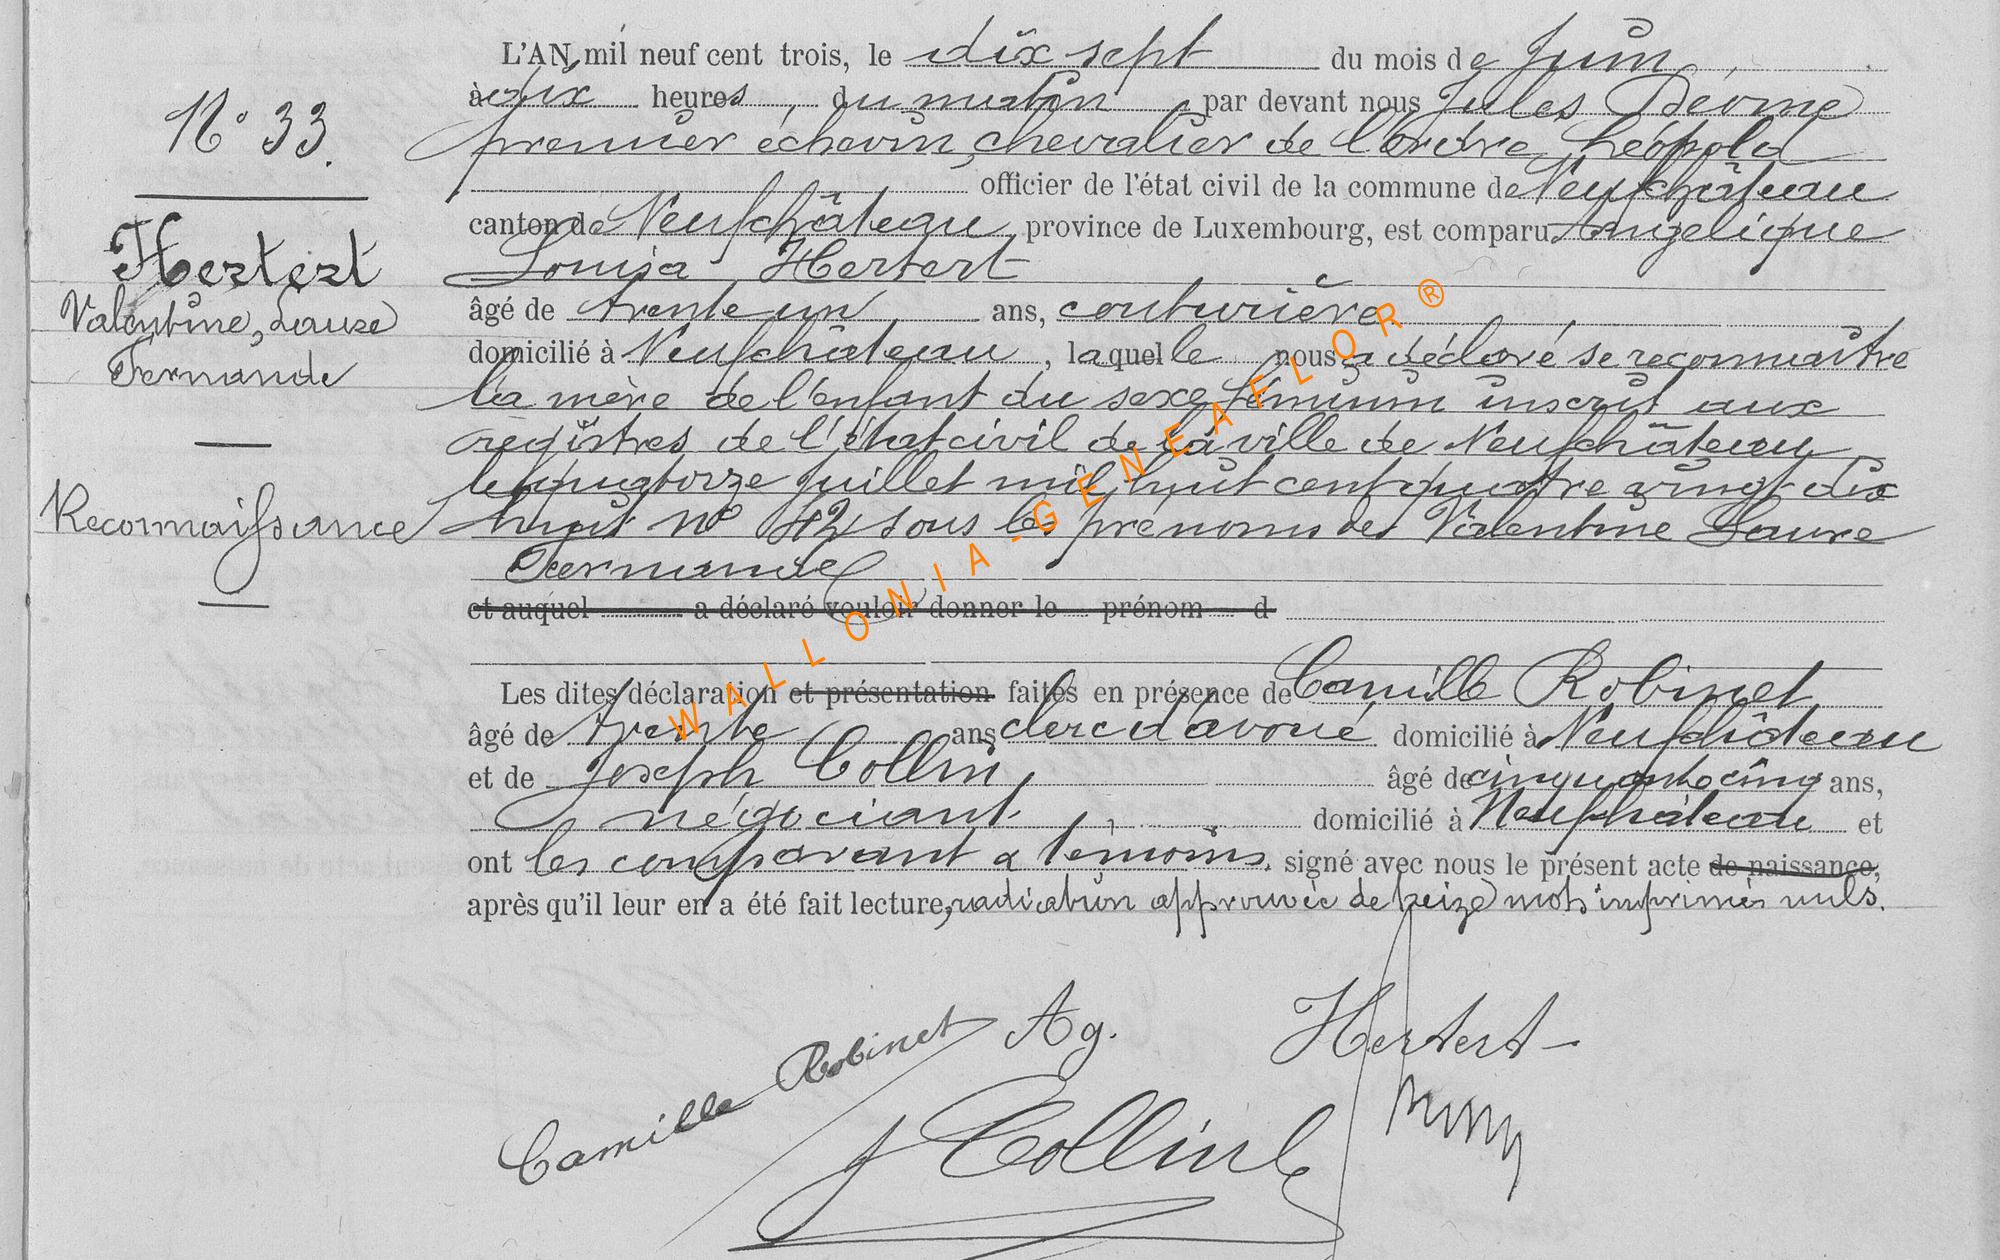 N° 33.
Hertert
Valentine, Laure
Fernande
Reconnaissance
L'AN mil neuf cent trois, le dix sept du mois de Juin
à dix heures du matin par devant nous Jules
premier échevin, chevalier de l'ordre Léopold
officier de l'état civil de la commune de Neufchâteau
canton de Neufchâteau, province de Luxembourg, est comparu Angélique
Louisa Hertert
âgé de trente un ans, couturière
domicilié à Neufchâteau, laquelle nous a déclaré se reconnaître
la mère de l'enfant du sexe féminin inscrit aux
registres de l'état civil de la ville de Neufchâteau
le quatorze Juillet mil huit cent quatre vingt dix
huit n° 42 sous les prénoms de Valentine Laure
Fernande
et auquel a déclaré vouloir donner le prénom d
Les dites déclaration et présentation faites en présence de Camille Robinet
âgé de trente ans clerc d'avoué domicilié à Neufchâteau
et de Joseph Collin, âgé de cinquante cinq ans,
négociant domicilié à Neufchâteau et
ont les comparant & témoins signé avec nous le présent acte de naissance,
après qu'il leur en a été fait lecture, radiation approuvée de treize mots imprimés nuls.
Camille Robinet Ag. Hertert
J Collin
WALLONIA-GENEAFLOR®